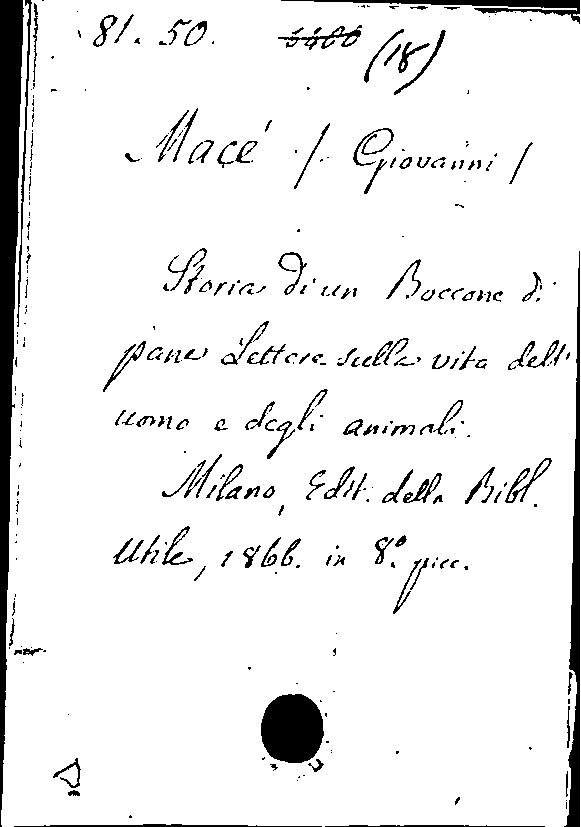 81. 50. (18)
Macé / Giovanni /
Storia di un Boccone di
pane Lettere sulla vita dell'
uomo e degli animali.
Milano, Edit. della Bibl.
Utile, 1866. in 8.º picc.